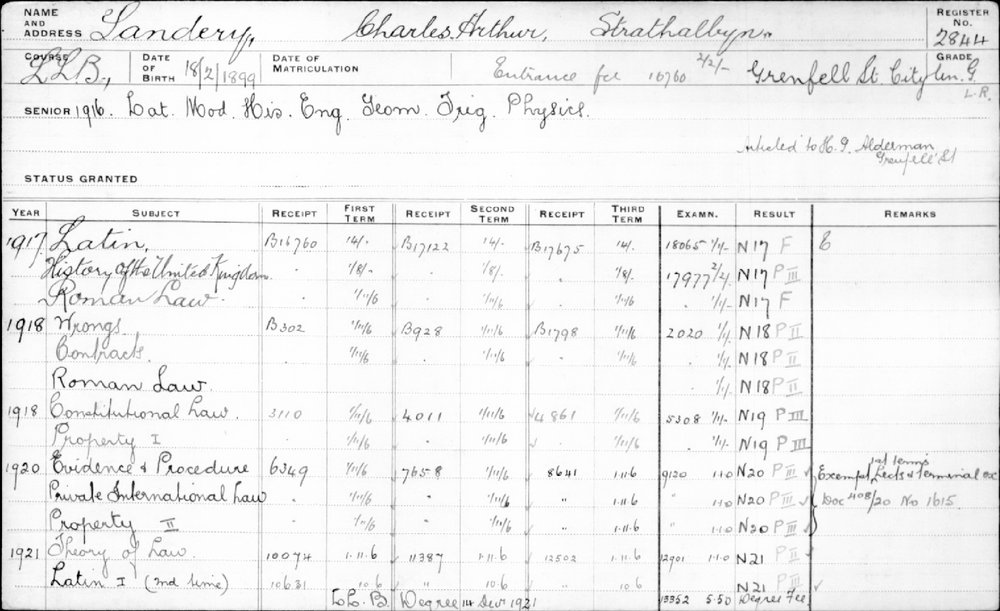 NAME AND ADDRESS Landery, Charles Arthur, Strathalbyn. REGISTER No. 2844
COURSE LLB., DATE OF BIRTH 18/2/1899 DATE OF MATRICULATION Entrance fee 16760 2/2/- Grenfell St. City GRADE G.
L.R.
SENIOR 1916. Lat. Mod. His. Eng. Geom. Trig. Physics.
Articled to H. G. Alderman
Grenfell St
STATUS GRANTED
YEAR SUBJECT RECEIPT FIRST TERM RECEIPT SECOND TERM RECEIPT THIRD TERM EXAMN. RESULT REMARKS
1917 Latin, B16760 14/- B17122 14/- B17675 14/- 18065 1/1/- N17 F E
History of the United Kingdom 1/8/- 1/8/- 1/8/- 17977 2/2/- N17 P III
Roman Law 1/11/6 1/11/6 1/11/6 1/1/- N17 F
1918 Wrongs B302 1/11/6 B928 1/11/6 B1798 1/11/6 2020 1/1/- N18 P II
Contracts. 1/11/6 1/11/6 1/11/6 1/1/- N18 P II
Roman Law 1/1/- N18 P II
1918 Constitutional Law 3110 1/11/6 4011 1/11/6 4861 1/11/6 5308 1/1/- N19 P III
Property I 1/11/6 1/11/6 1/11/6 1/1/- N19 P III
1920 Evidence & Procedure 6349 1/11/6 7658 1/11/6 8641 1.11.6 9120 1.1.0 N20 P III Exempt 1st term's Lects & terminal ex
Private International Law 1/11/6 1/11/6 " 1.11.6 " 1.1.0 N20 P III Doc 408/20 No 1615.
Property II 1/11/6 1/11/6 1.11.6 " 1.1.0 N20 P III
1921 Theory of Law 10074 1.11.6 11387 1.11.6 12502 1.11.6 12901 1.1.0 N21 P II
Latin I (2nd time) 10631 10.6 " 10.6 " 10.6 N21 P III
LL.B Degree 14 Decr 1921 13352 5.5.0 Degree Fee